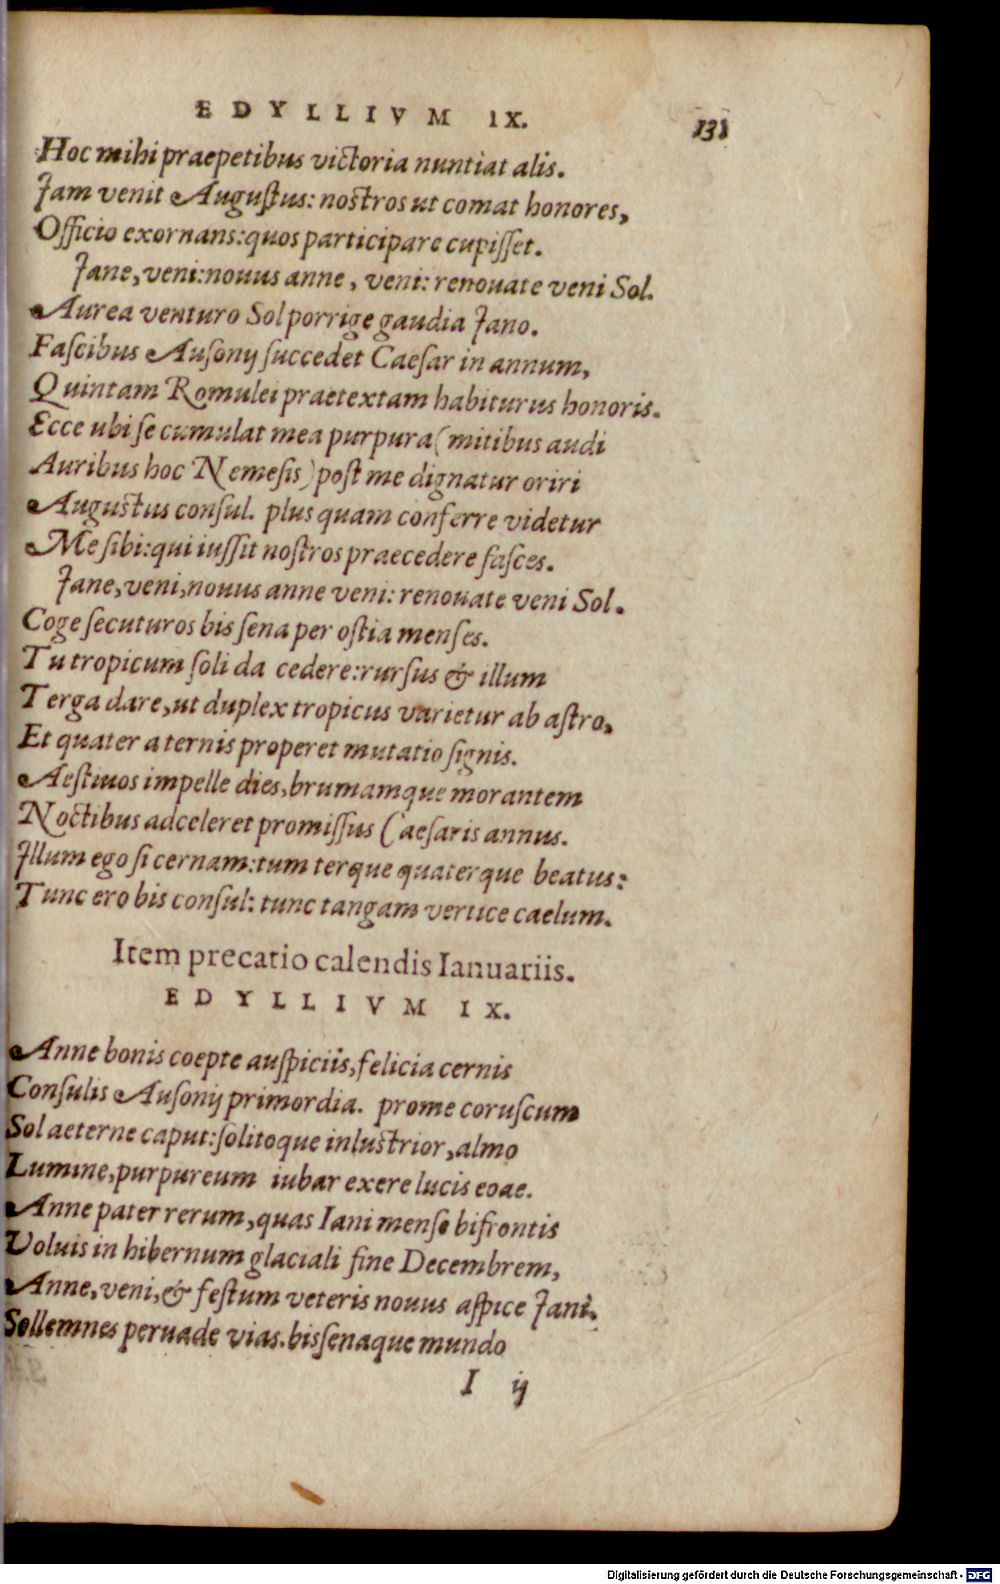 EDYLLIVM IX. 131
Hoc mihi praepetibus victoria nuntiat alis.
Iam venit Augustus: nostros ut comat honores,
Officio exornans: quos participare cupisset.
Iane, veni: nouus anne, veni: renouate veni Sol.
Aurea venturo Sol porrige gaudia Iano.
Fascibus Ausonij succedet Caesar in annum,
Quintam Romulei praetextam habiturus honoris.
Ecce ubi se cumulat mea purpura (mitibus audi
Auribus hoc Nemesis) post me dignatur oriri
Augustus consul. plus quam conferre videtur
Me sibi: qui iussit nostros praecedere fasces.
Iane, veni, nouus anne veni: renouate veni Sol.
Coge secuturos bis sena per ostia menses.
Tu tropicum soli da cedere: rursus & illum
Terga dare, ut duplex tropicus varietur ab astro,
Et quater a ternis properet mutatio signis.
Aestiuos impelle dies, brumamque morantem
Noctibus adceleret promissus Caesaris annus.
Illum ego si cernam: tum terque quaterque beatus:
Tunc ero bis consul: tunc tangam vertice caelum.
Item precatio calendis Ianuariis.
EDYLLIVM IX.
Anne bonis coepte auspiciis, felicia cernis
Consulis Ausonij primordia. prome coruscum
Sol aeterne caput: solitoque inlustrior, almo
Lumine, purpureum iubar exere lucis eoae.
Anne pater rerum, quas Iani mense bifrontis
Voluis in hibernum glaciali fine Decembrem,
Anne, veni, & festum veteris nouus aspice Iani.
Sollemnes peruade vias. bissenaque mundo
I ij
Digitalisierung gefördert durch die Deutsche Forschungsgemeinschaft - DFG